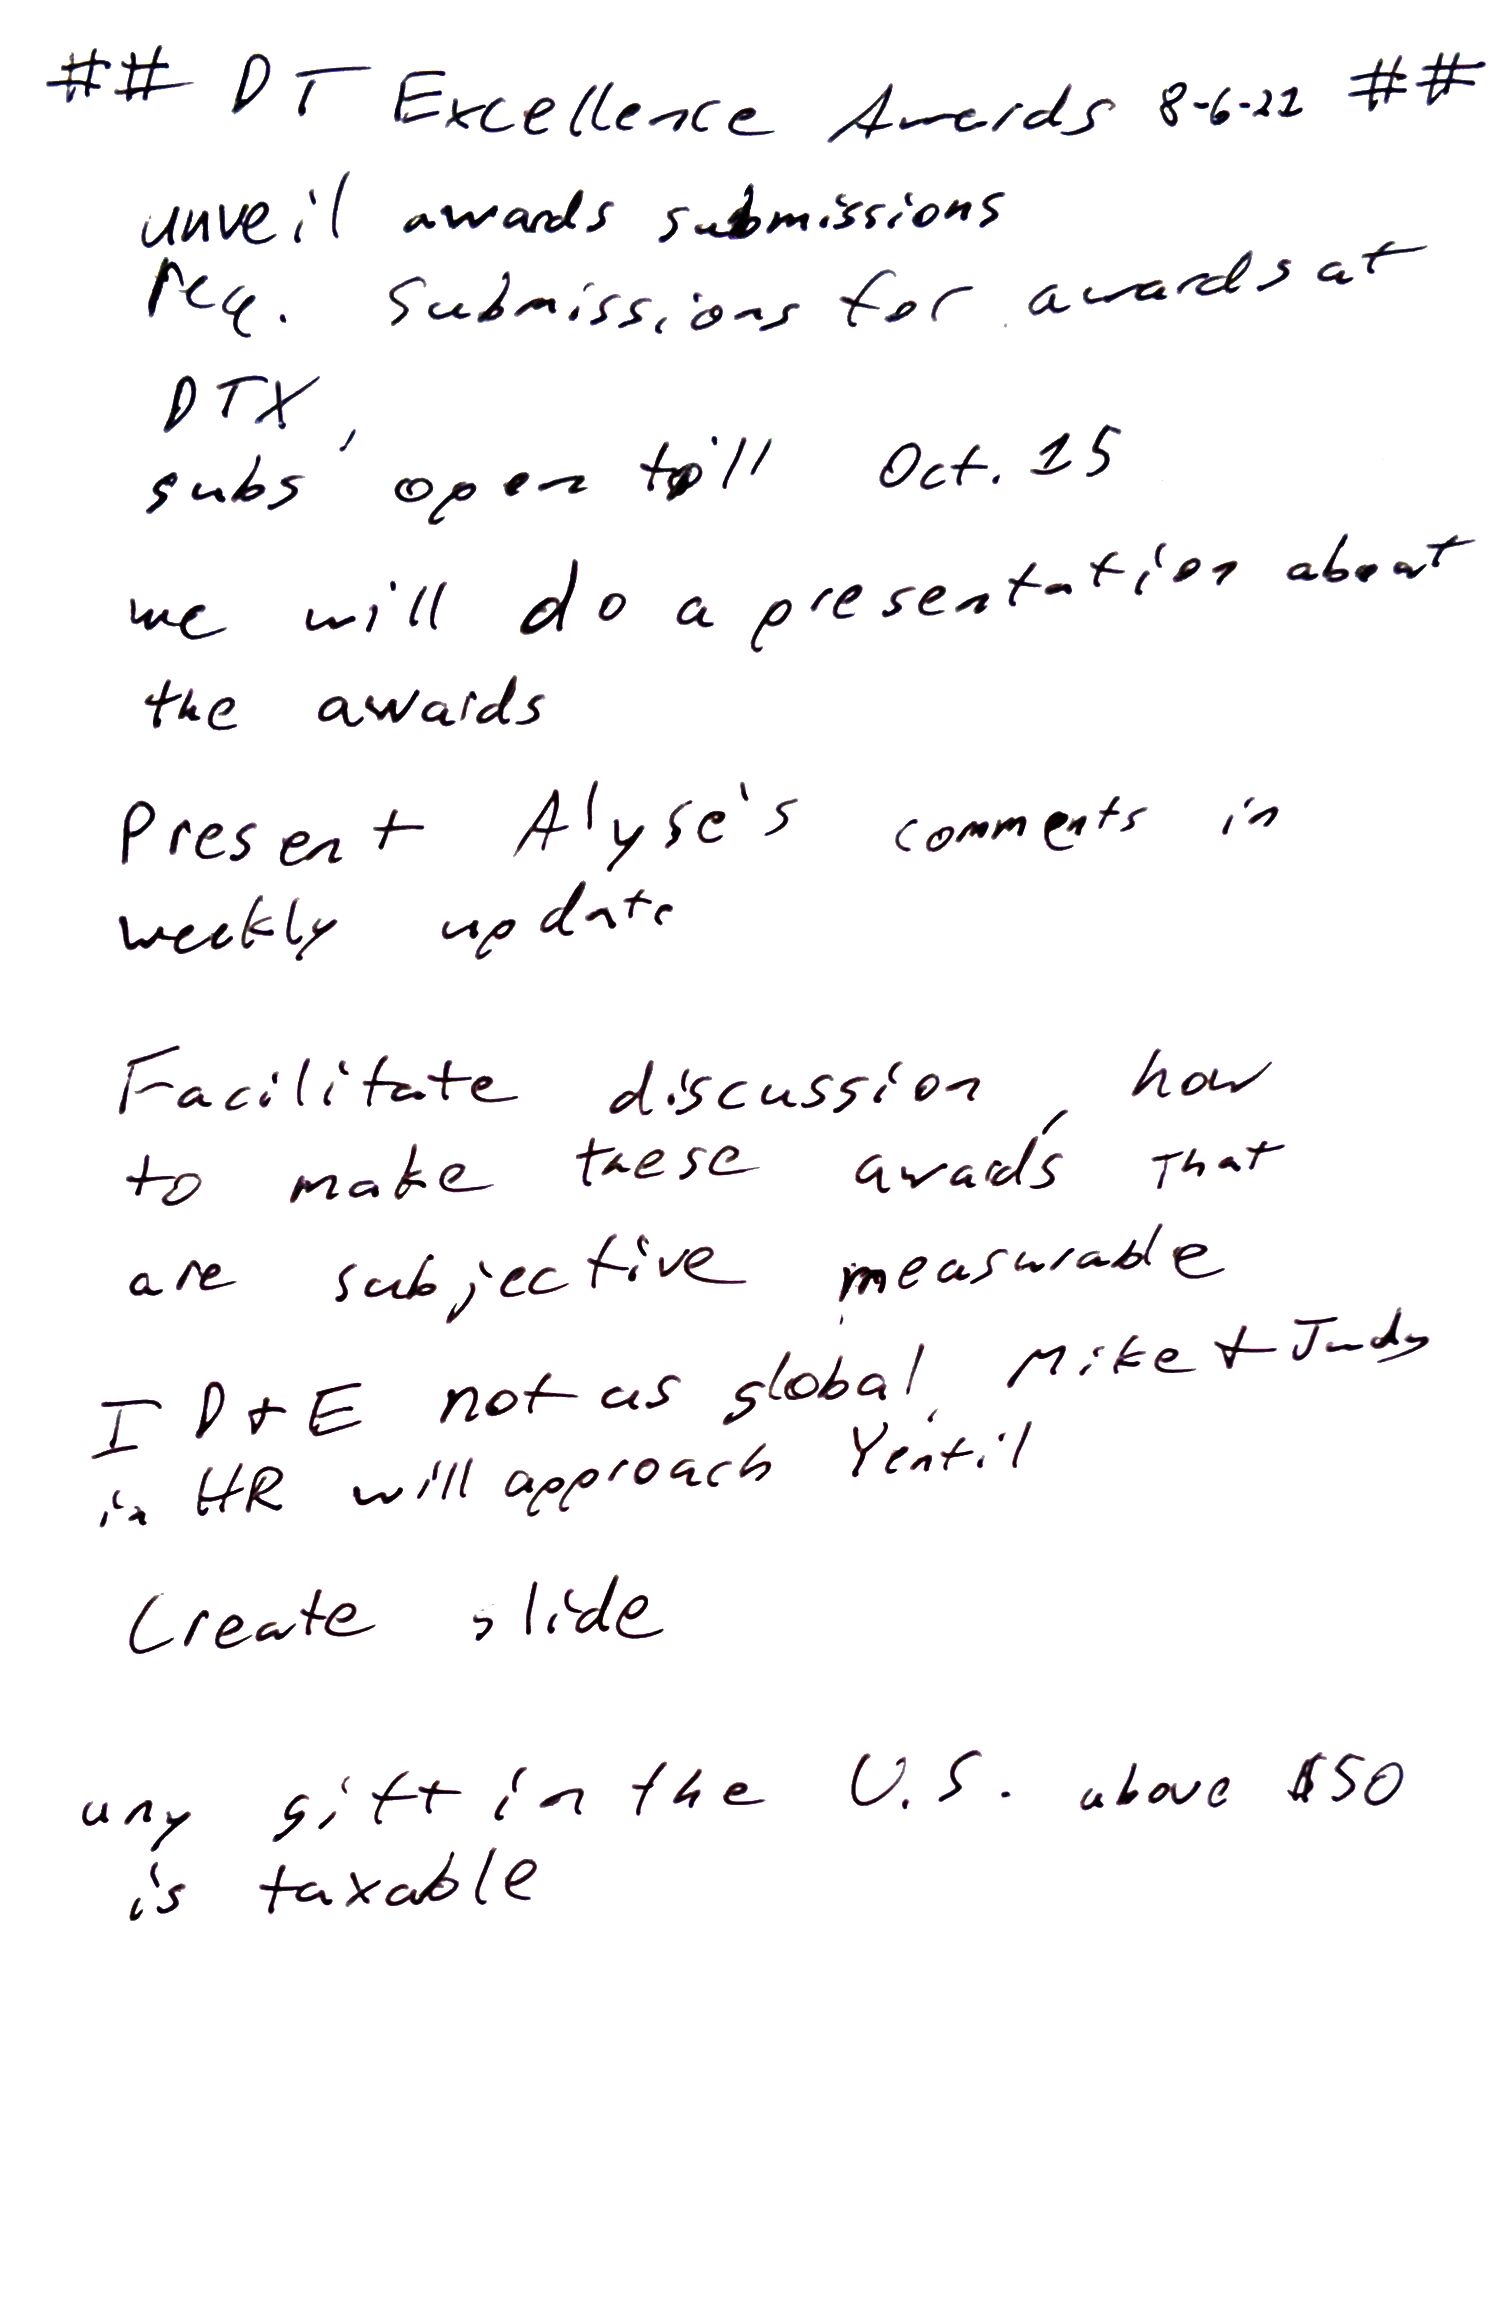 ## DT Excellence Awards 8-6-22 ##
unveil awards submissions
req. submissions for awards at
DTX,
subs open till Oct. 15
we will do a presentation about
the awards
Present Alyse's comments in
weekly update
Facilitate discussion, how
to make these awads that
are subjective measurable
I D+E not as global, Mike + Judy
in HR will approach Yentil
Create slide
any gift in the U.S. above $50
is taxable